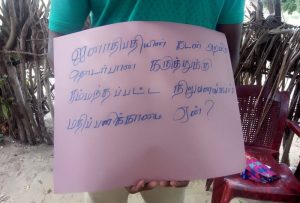 ஜனாதிபதியின் கடன்
தொடர்பான கருத்துக்கு
சம்மந்தப்பட்ட நிறுவனங்கள்
மதிப்பளிக்காமை ஏன்?